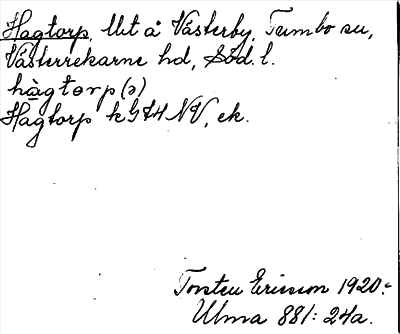 Hagtorp, lht å Västerby, Tumbo sn,
Västerrekarne hd, Söd. l.
hàgtorp(ə)
Hagtorp k G44 NV, ek.
Torsten Ericsson 1920.
Ulma 881: 24a.